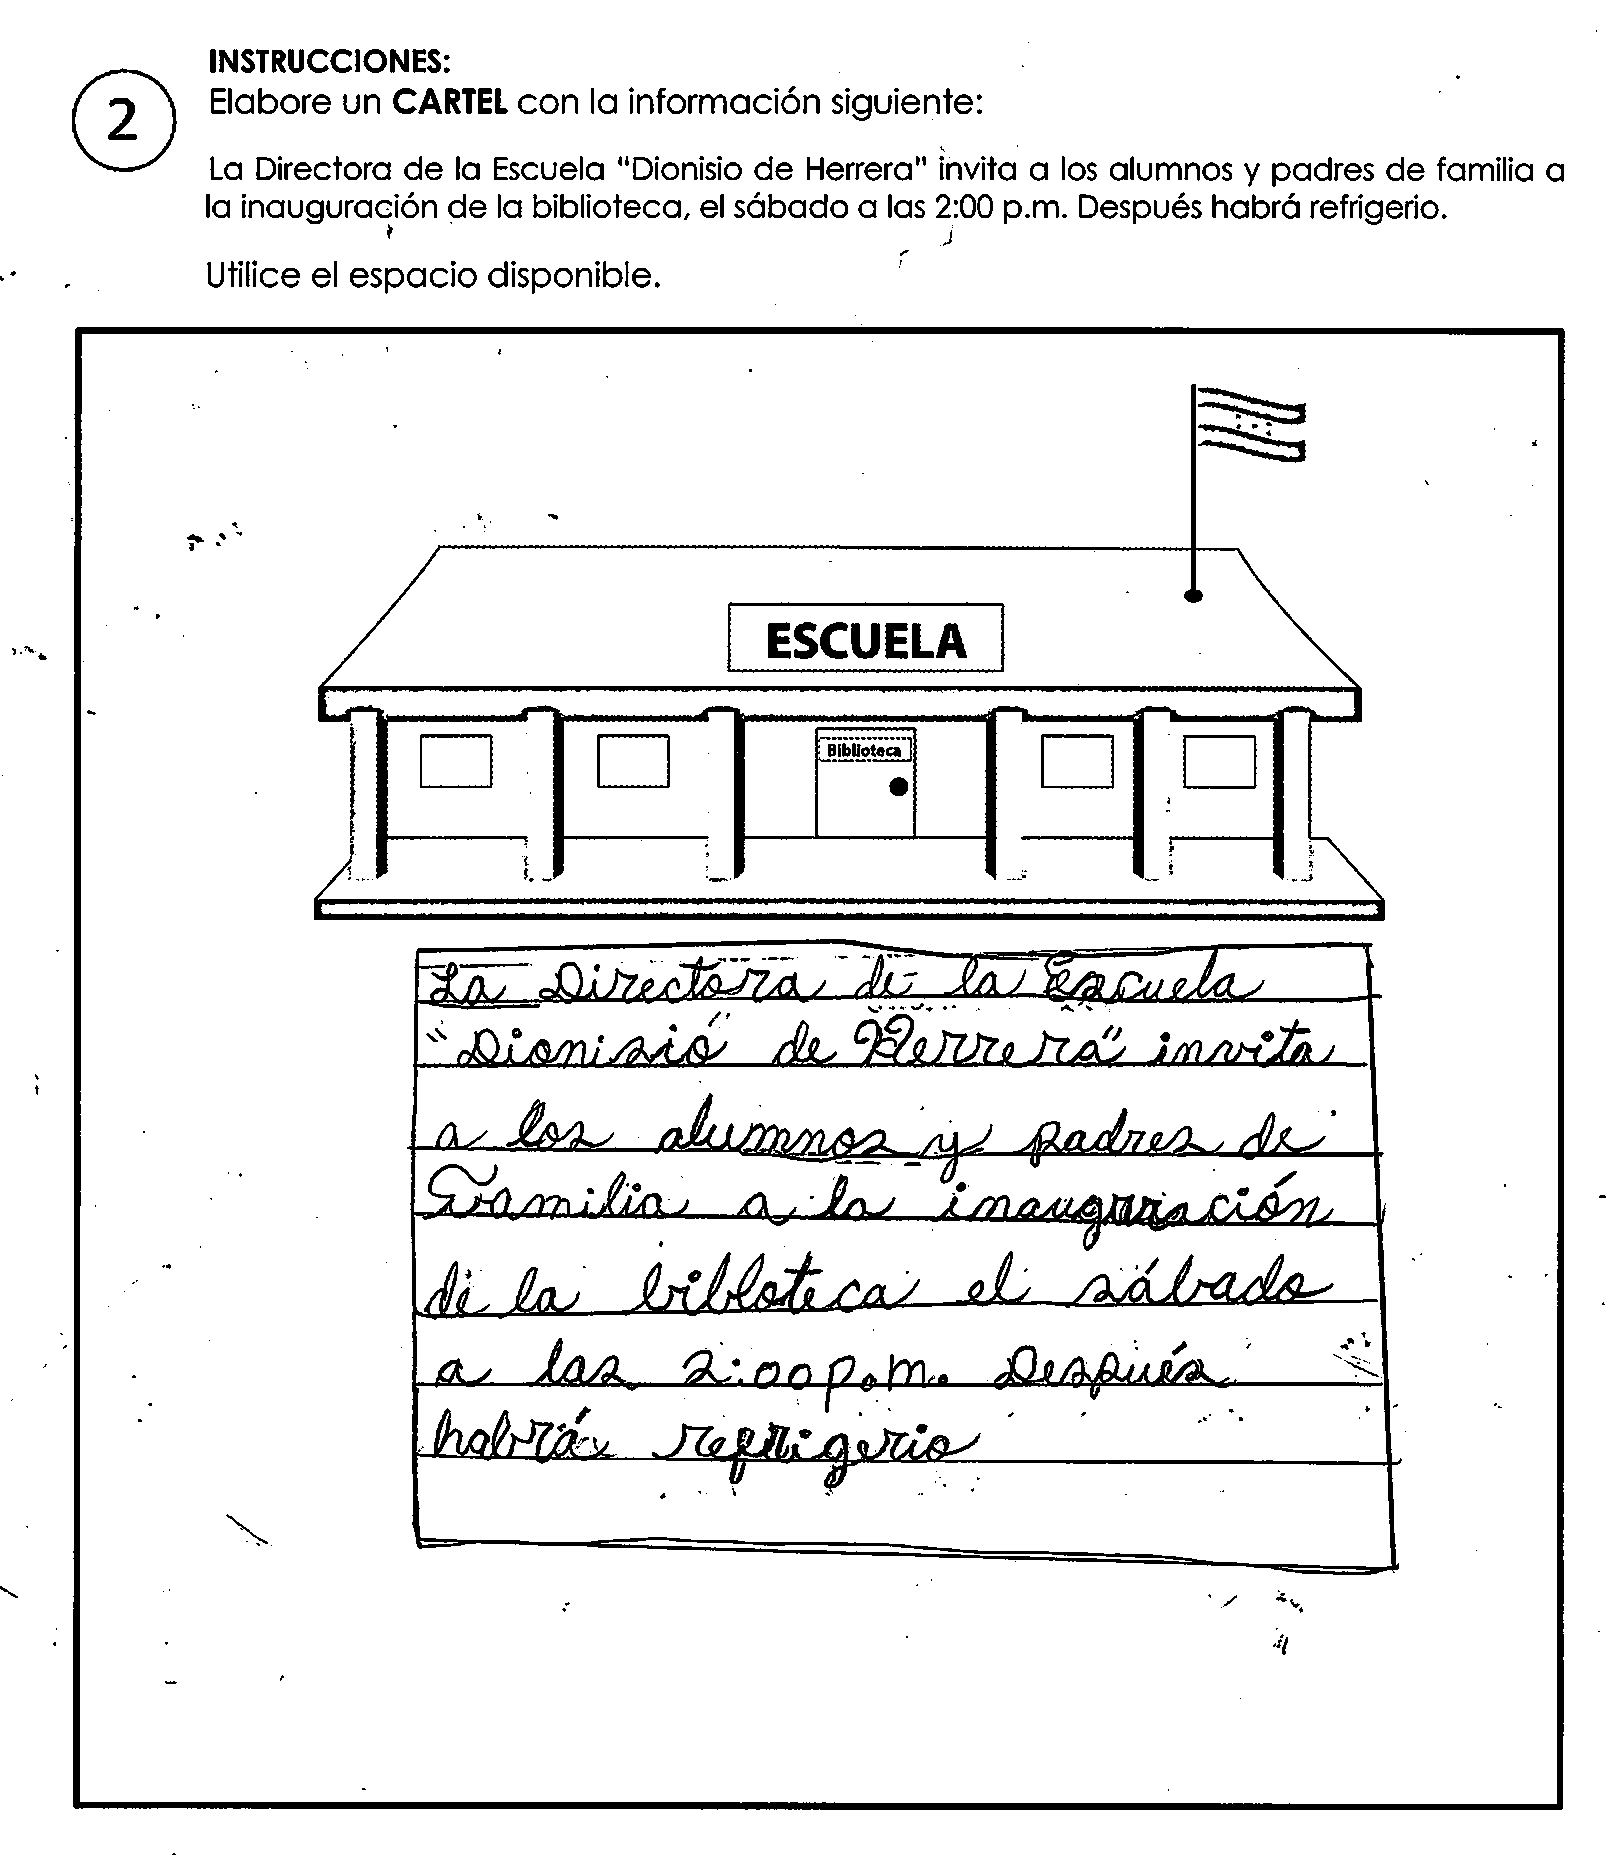 INSTRUCCIONES:
2
Elabore un CARTEL con la información siguiente:
La Directora de la Escuela "Dionisio de Herrera" invita a los alumnos y padres de familia a
la inauguración de la biblioteca, el sábado a las 2:00 p.m. Después habrá refrigerio.
Utilice el espacio disponible.
ESCUELA
Biblioteca
La Directora de la Escuela
"Dionisio" de Herrera" invita
a los alumnos y padres de
Familia a la inauguración
de la bibloteca el sábado
a las 2:00 p.m. Después
habrá refrigerio